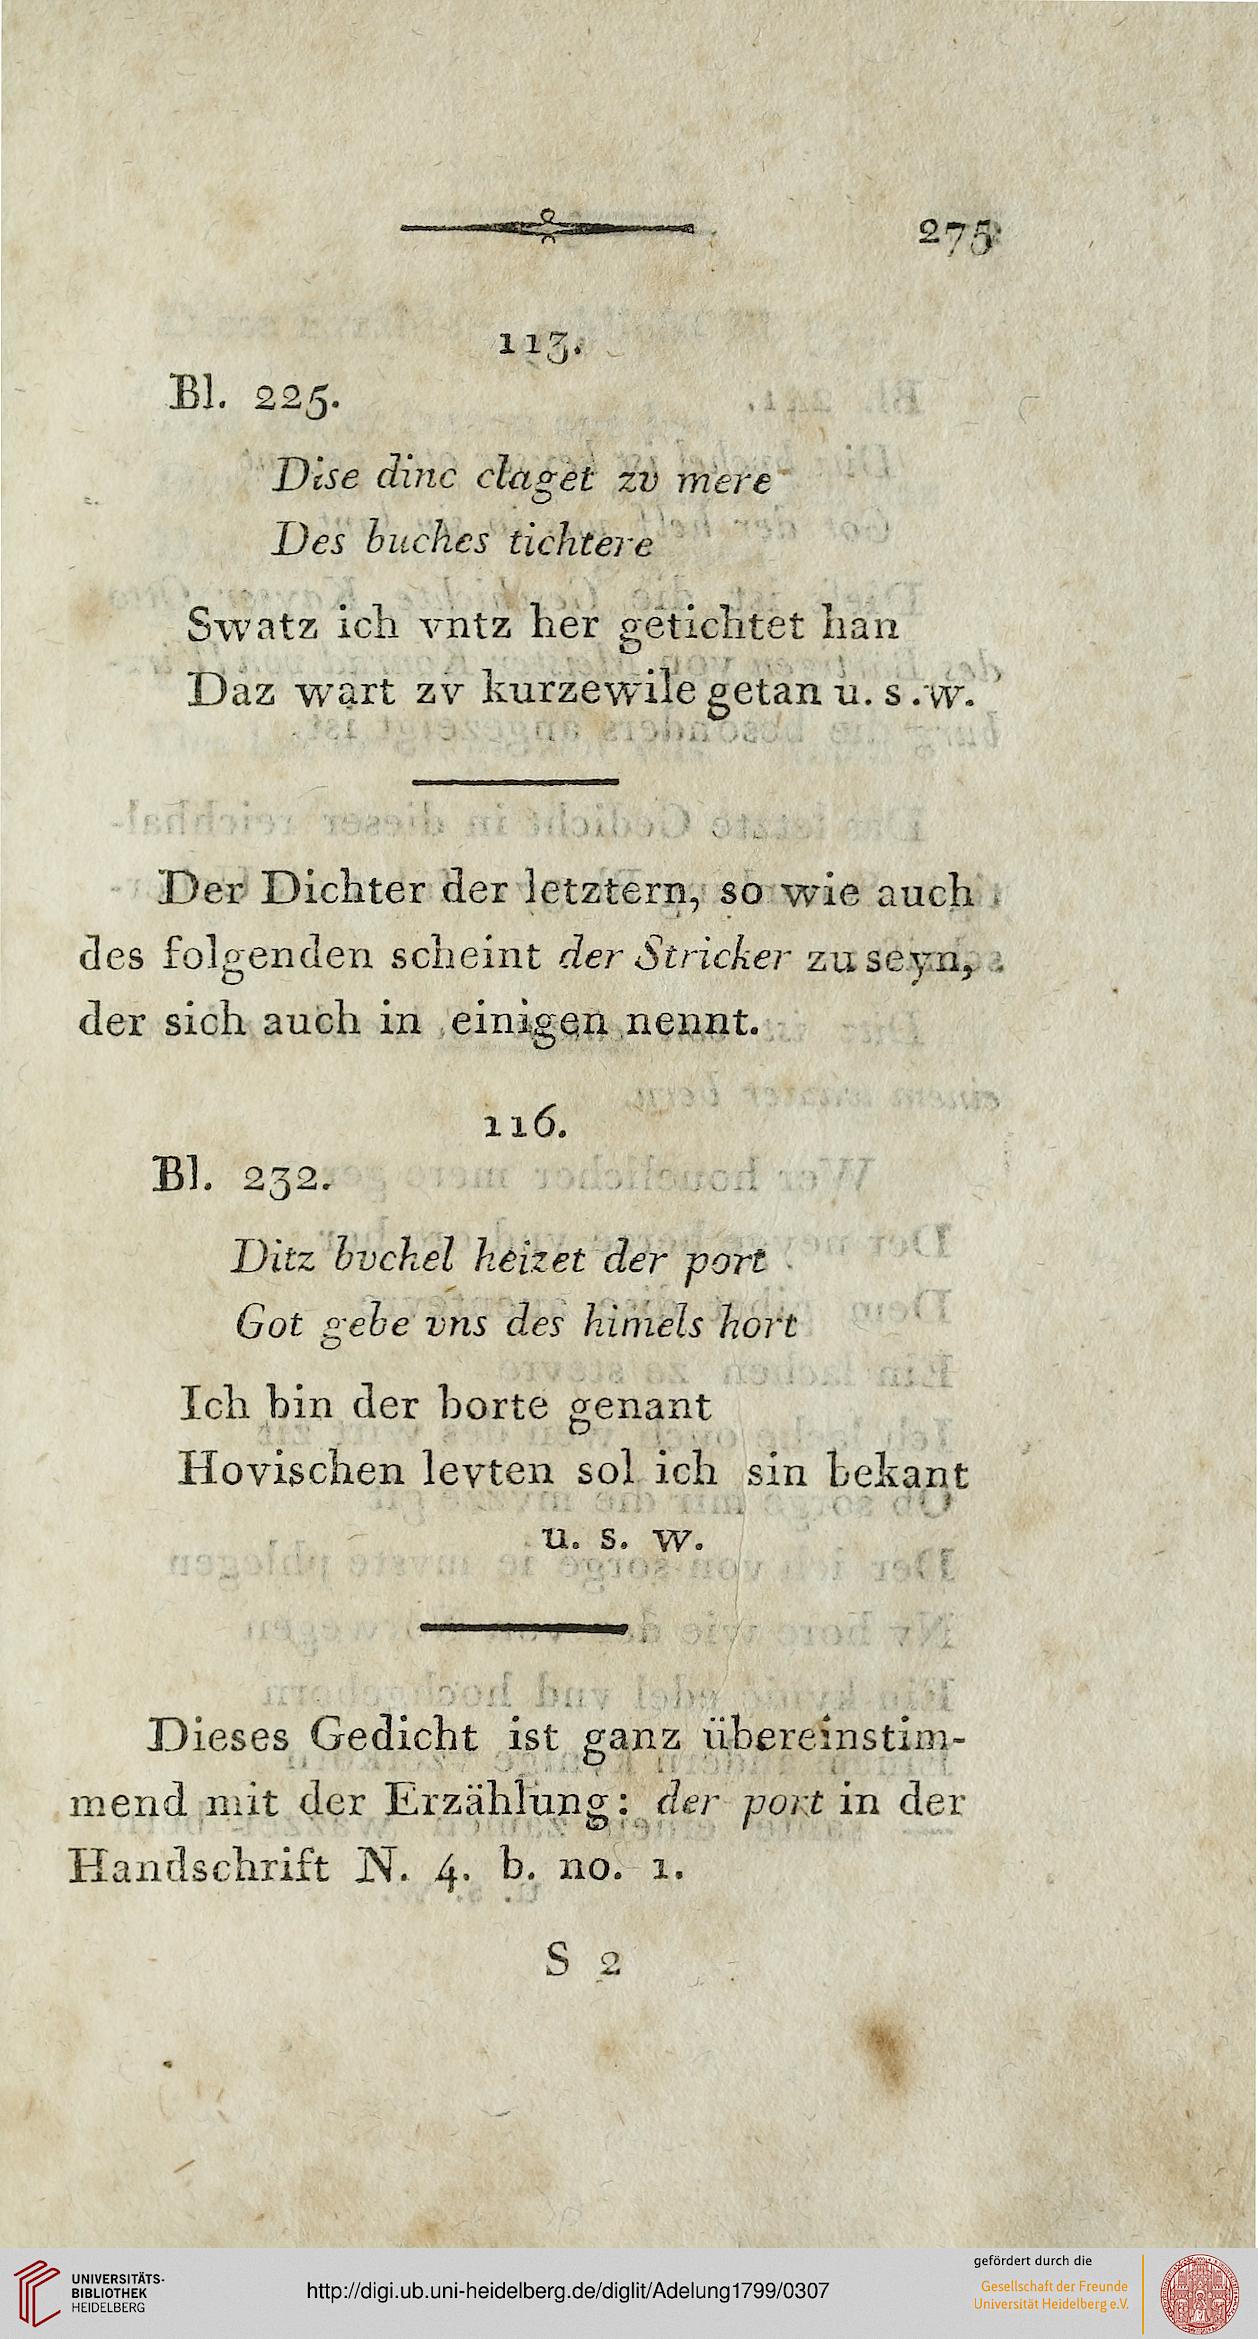 275
113.
Bl. 225.
Dise dinc claget zv mere
Des buches tichtere
Swatz ich vntz her getichtet han
Daz wart zv kurzewile getan u. s. w.
Der Dichter der letztern, so wie auch
des folgenden scheint der Stricker zu seyn,
der sich auch in einigen nennt.
116.
Bl. 232.
Ditz bvchel heizet der port
Got gebe vns des himels hort
Ich bin der borte genant
Hovischen levten sol ich sin bekant
u. s. w.
Dieses Gedicht ist ganz übereinstim-
mend mit der Erzählung: der port in der
Handschrift N. 4. b. no. 1.
S 2
UNIVERSITÄTS-
BIBLIOTHEK
HEIDELBERG
http://digi.ub.uni-heidelberg.de/diglit/Adelung1799/0307
gefördert durch die
Gesellschaft der Freunde
Universität Heidelberg e.V.